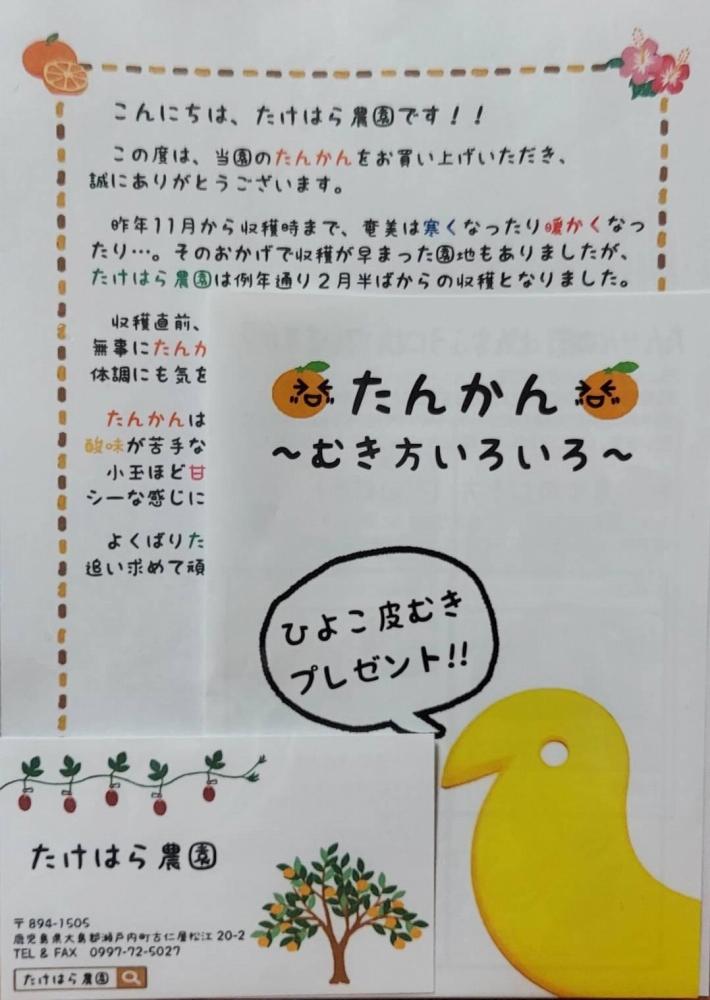 こんにちは、たけはら農園です！！
この度は、当園のたんかんをお買い上げいただき、
誠にありがとうございます。
昨年11月から収穫時まで、奄美は寒くなったり暖かくなっ
たり…。そのおかげで収穫が早まった園地もありましたが、
たけはら農園は例年通り２月半ばからの収穫となりました。
収穫直前、
無事にたんか
体調にも気を
たんかんは
酸味が苦手な
小玉ほど甘
シーな感じに
よくばりた
追い求めて頑
たんかん
～むき方いろいろ～
ひよこ皮むき
プレゼント!!
たけはら農園
〒894-1505
鹿児島県大島郡瀬戸内町古仁屋松江20-2
TEL & FAX 0997-72-5027
たけはら農園